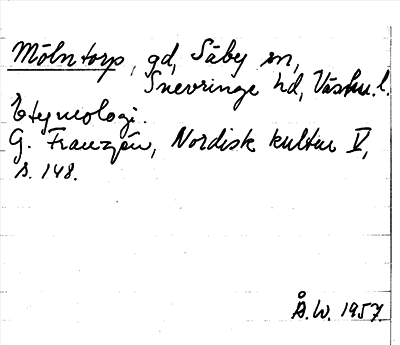 Mölntorp, gd, Säby sn,
Snevringe hd, Västm. l.
Etymologi.
G. Franzén, Nordisk kultur V,
s. 148.
Å. W. 1957.